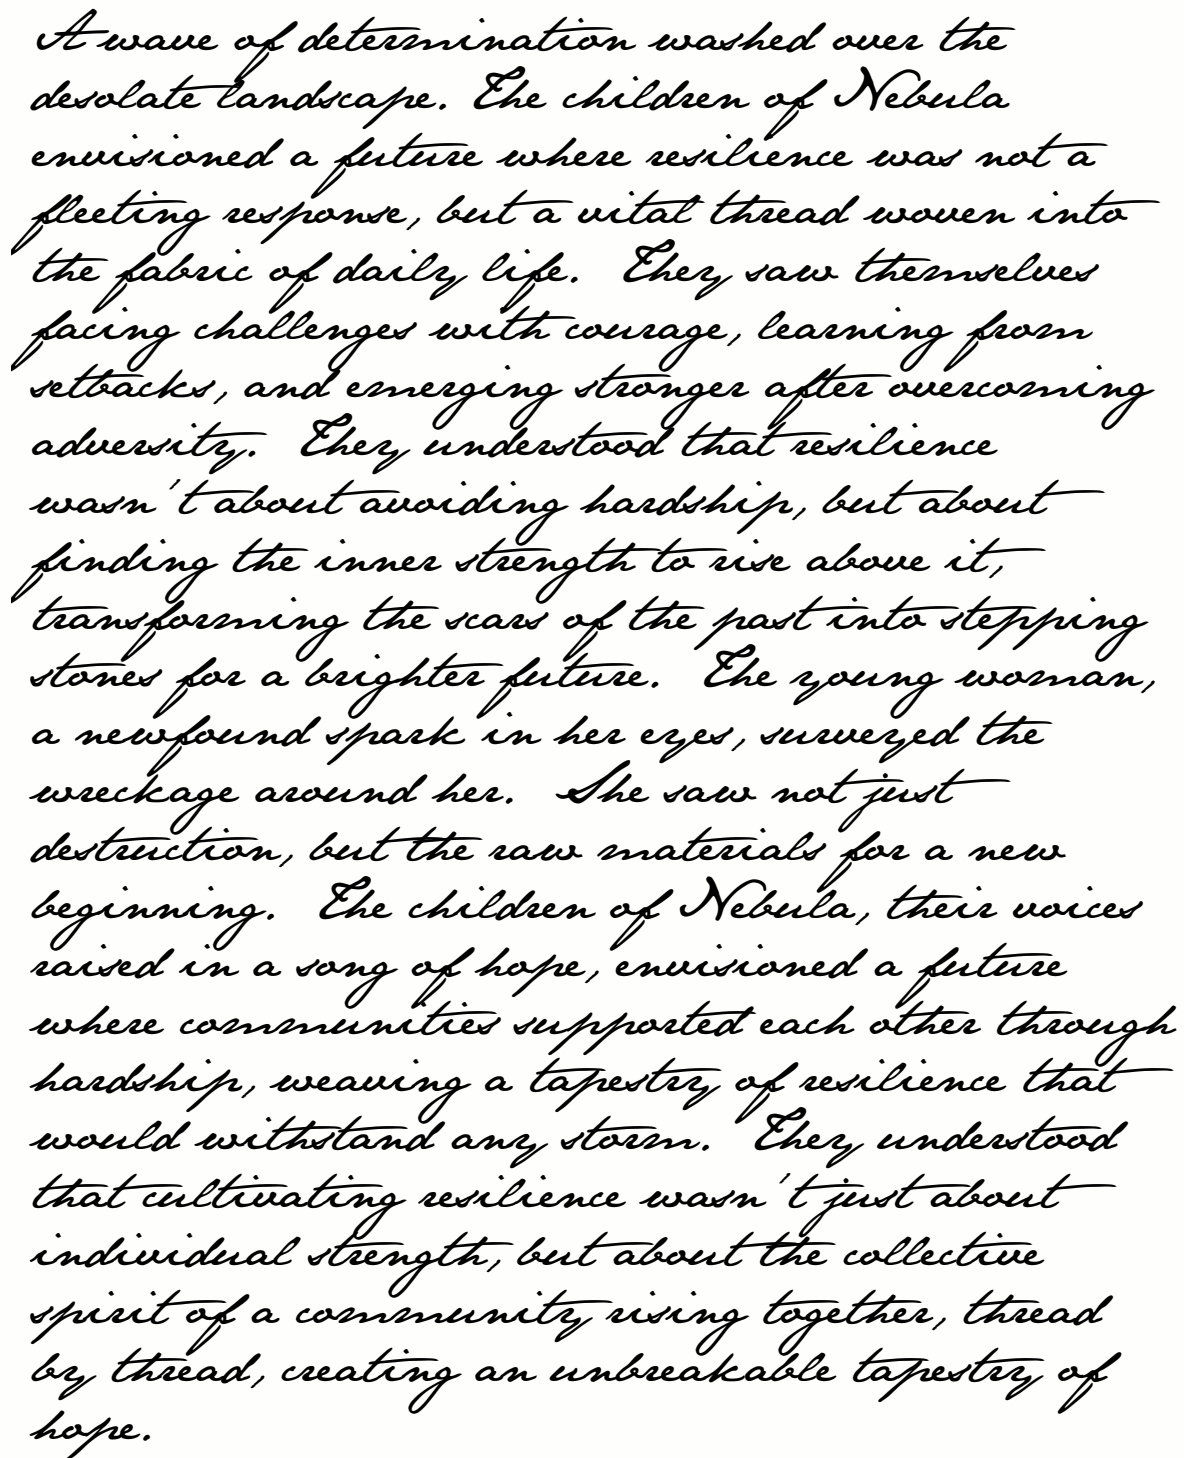 A wave of determination washed over the
desolate landscape. The children of Nebula
envisioned a future where resilience was not a
fleeting response, but a vital thread woven into
the fabric of daily life. They saw themselves
facing challenges with courage, learning from
setbacks, and emerging stronger after overcoming
adversity. They understood that resilience
wasn't about avoiding hardship, but about
finding the inner strength to rise above it,
transforming the scars of the past into stepping
stones for a brighter future. The young woman,
a newfound spark in her eyes, surveyed the
wreckage around her. She saw not just
destruction, but the raw materials for a new
beginning. The children of Nebula, their voices
raised in a song of hope, envisioned a future
where communities supported each other through
hardship, weaving a tapestry of resilience that
would withstand any storm. They understood
that cultivating resilience wasn't just about
individual strength, but about the collective
spirit of a community rising together, thread
by thread, creating an unbreakable tapestry of
hope.